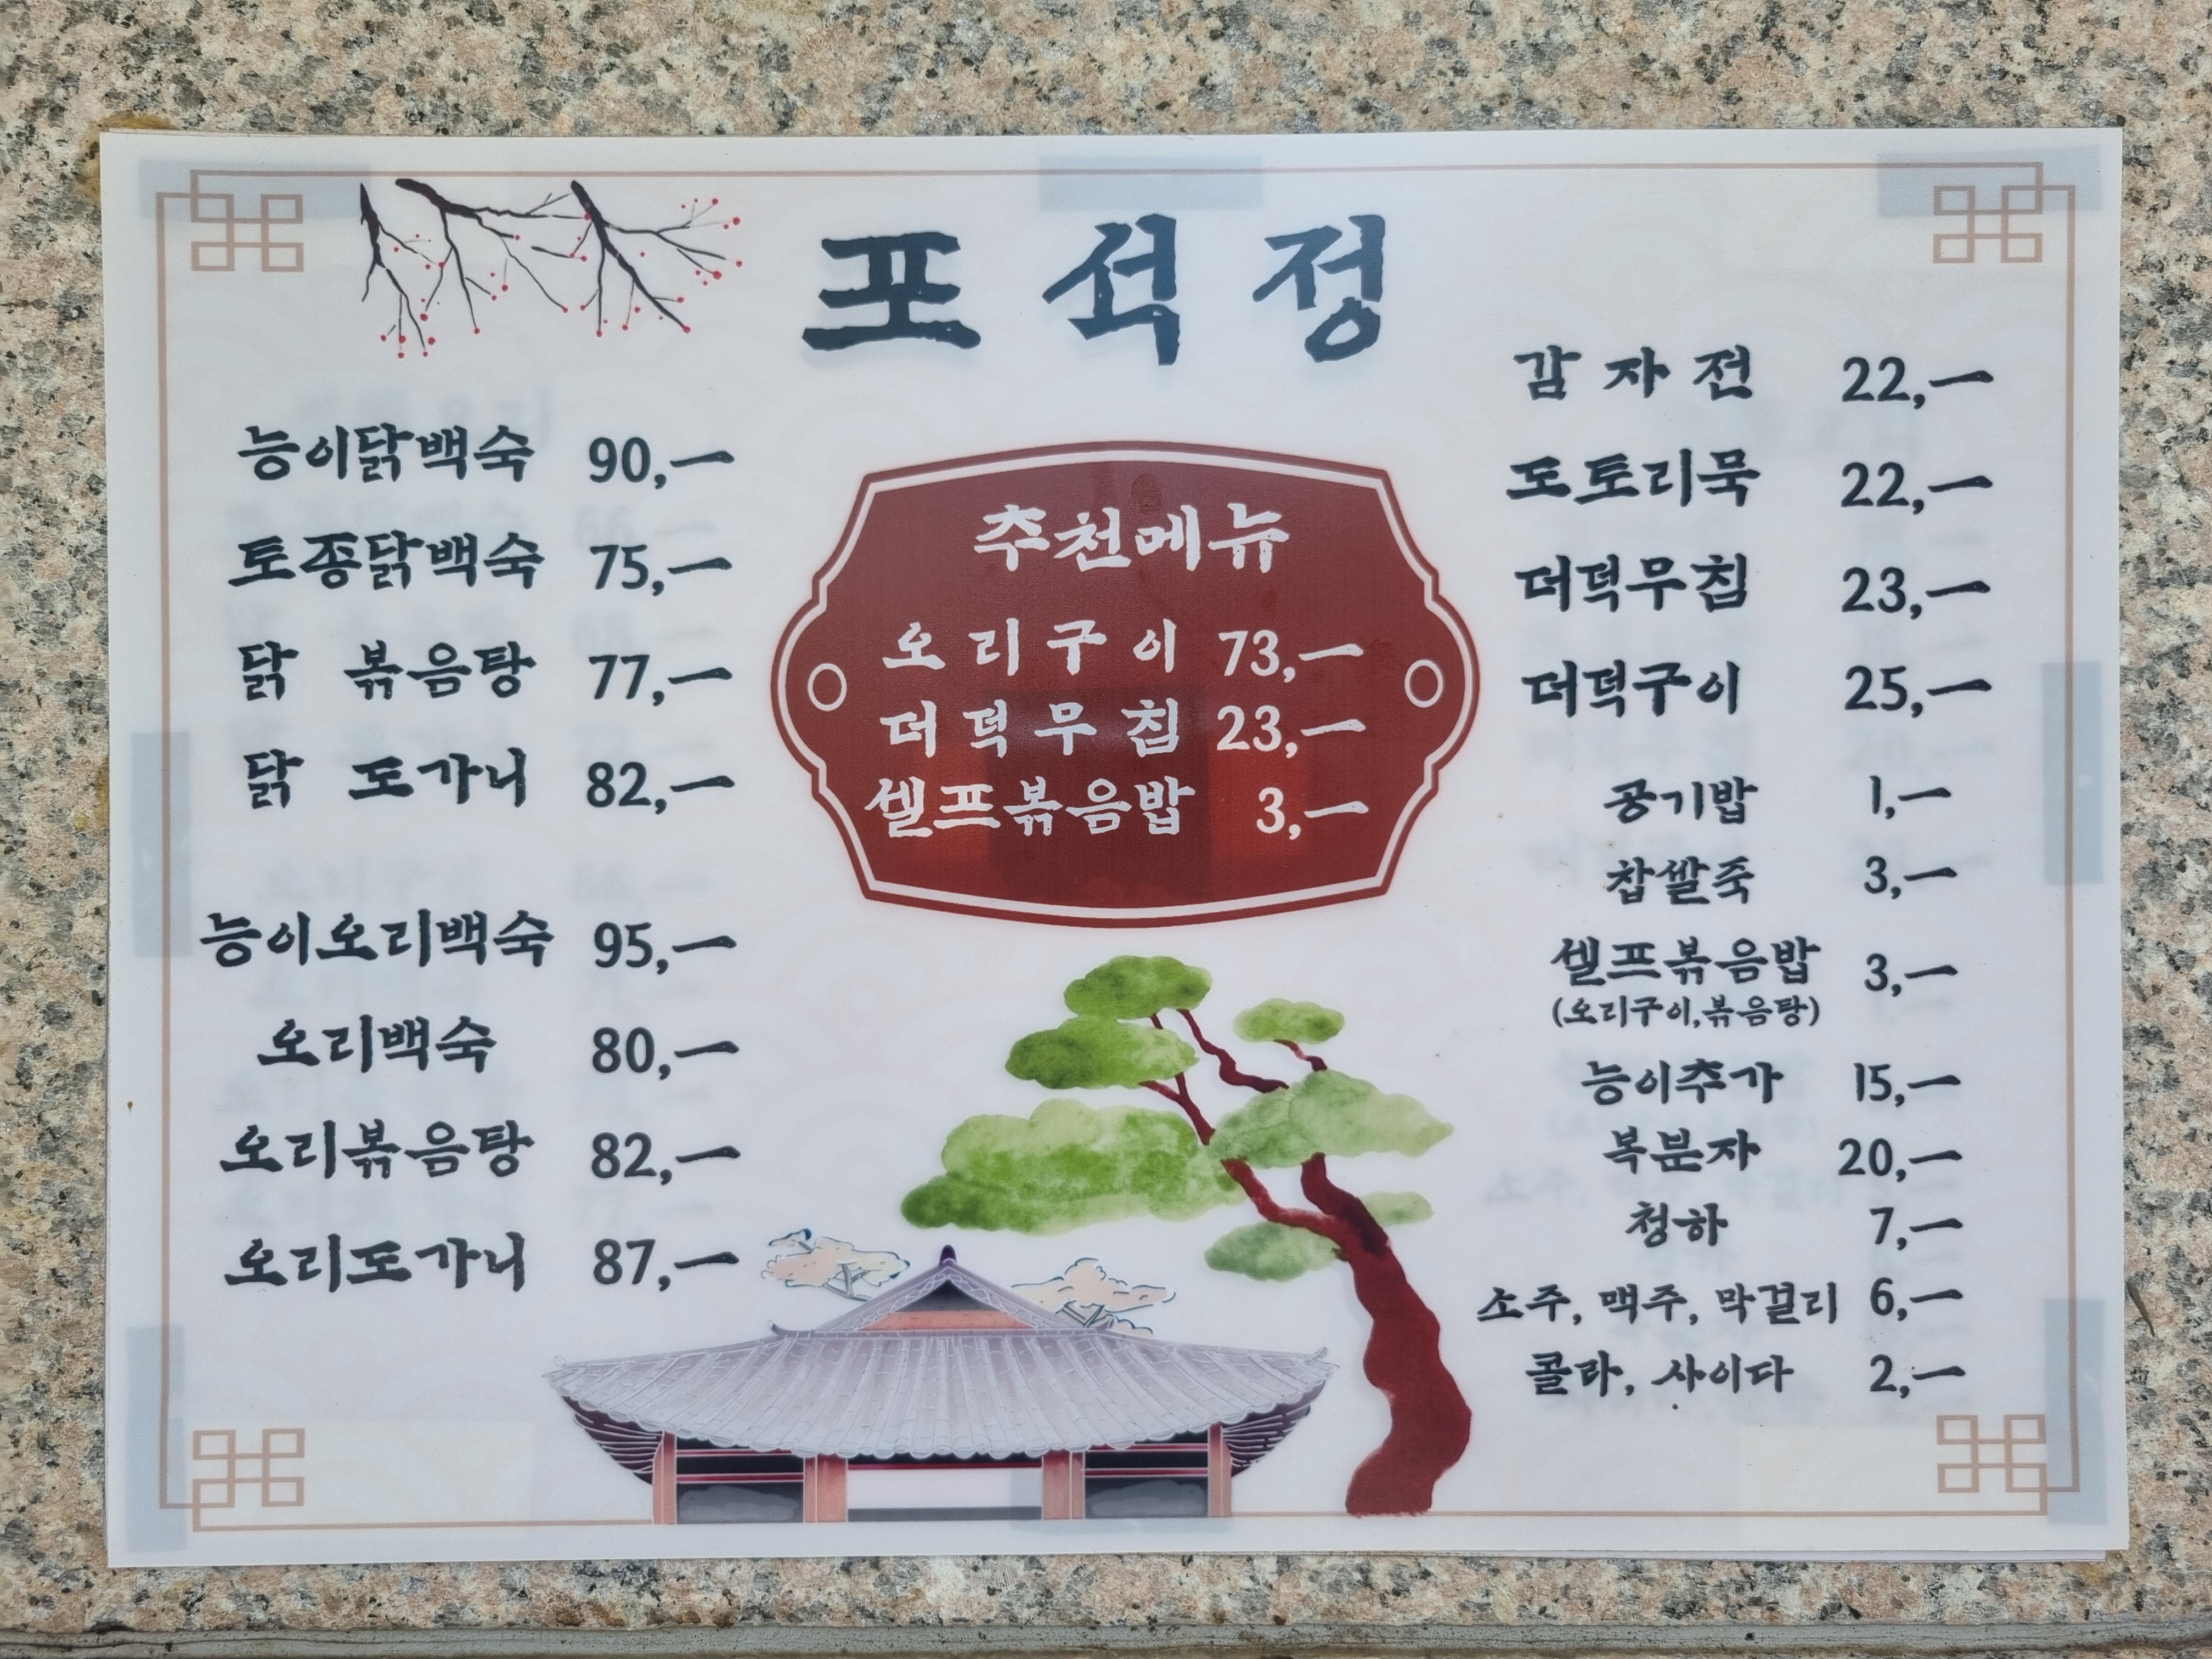 포석정
능이닭백숙 90,一
토종닭백숙 75,一
닭 볶음탕 77,一
닭 도가니 82,一
능이오리백숙 95,一
오리백숙 80,一
오리볶음탕 82,一
오리도가니 87,一
추천메뉴
오리구이 73,一
더덕무침 23,一
셀프볶음밥 3,一
감자전 22,一
도토리묵 22,一
더덕무침 23,一
더덕구이 25,一
공기밥 1,一
찹쌀죽 3,一
셀프볶음밥 3,一
(오리구이,볶음탕)
능이추가 15,一
복분자 20,一
청하 7,一
소주, 맥주, 막걸리 6,一
콜라, 사이다 2,一